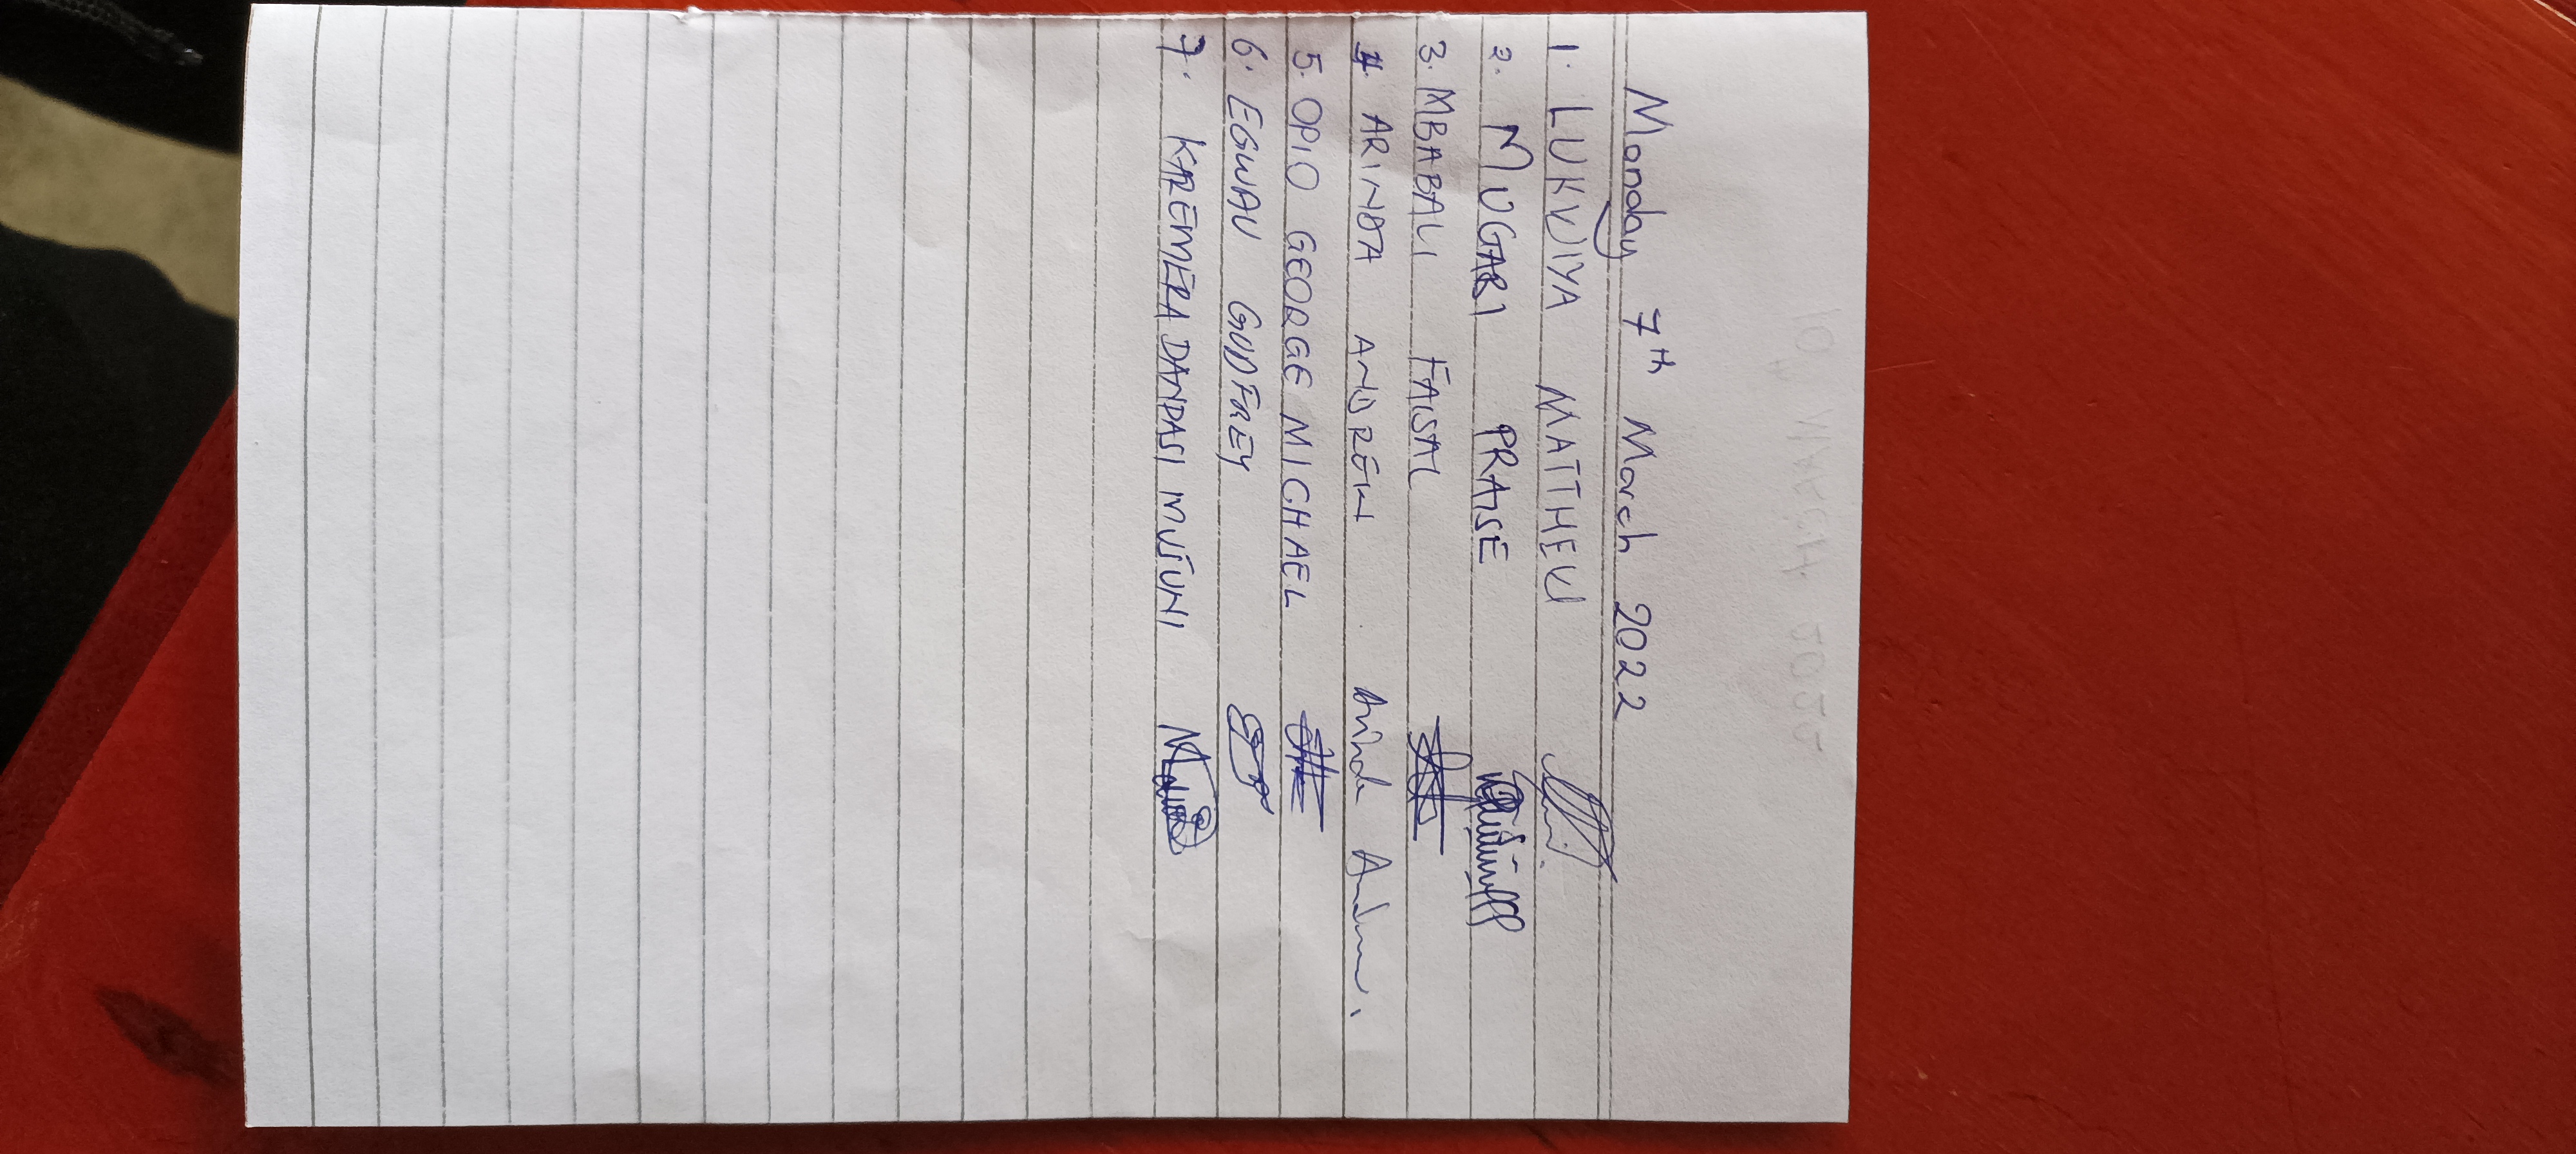 Monday 7th March 2022
1. LUKWIYA MATTHEW
2. MUGABI PRAISE
3. MBABALI FAISAL
4. ARINDA ANDREW Arinda Andrew.
5. OPIO GEORGE MICHAEL
6. EGWAU GODFREY
7. KAREMERA DANDASI MUJUNI